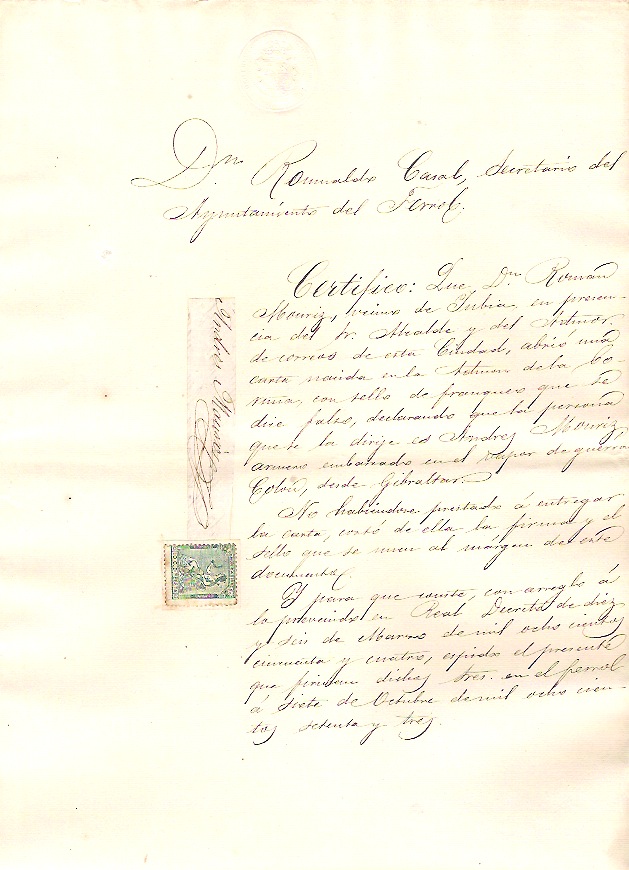 Dn. Romualdo Casal, Secretario del
Ayuntamiento del Ferrol.
Certifico: Que Dn Roman
Mouriz, vecino de Jubia, en presen-
cia del Sr. Alcalde y del Admor.
de correos de esta Ciudad, abrió una
carta nacida en la Admon de la Co-
ruña, con sello de franqueo que se
dice falso, declarando que la persona
que se la dirije es Andres Mouriz,
armero embarcado en el vapor de guerra
Colon, desde Gibraltar.
No habiendose prestado á entregar
la carta, cortó de ella la firma y el
sello que se unen al márgen de este
documento.
Y para que conste, con arreglo á
lo prevenido en Real Decreto de diez
y seis de Marzo de mil ocho cientos
cincuenta y cuatro, espido el presente
que firman dichos tres en el Ferrol
á siete de Octubre de mil ocho cien-
tos setenta y tres.
Andres Mouriz